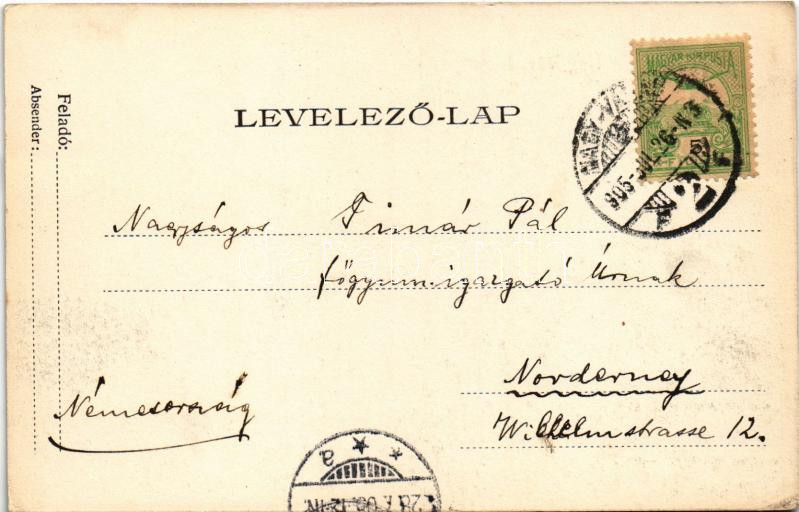 Feladó:
Absender:
LEVELEZŐ-LAP
MAGYAR KIR. POSTA
905 JUL. 26
Nagyságos Timár Pál
főgymn. igazgató Úrnak
Norderney
Wilhelmstrasse 12.
Németország